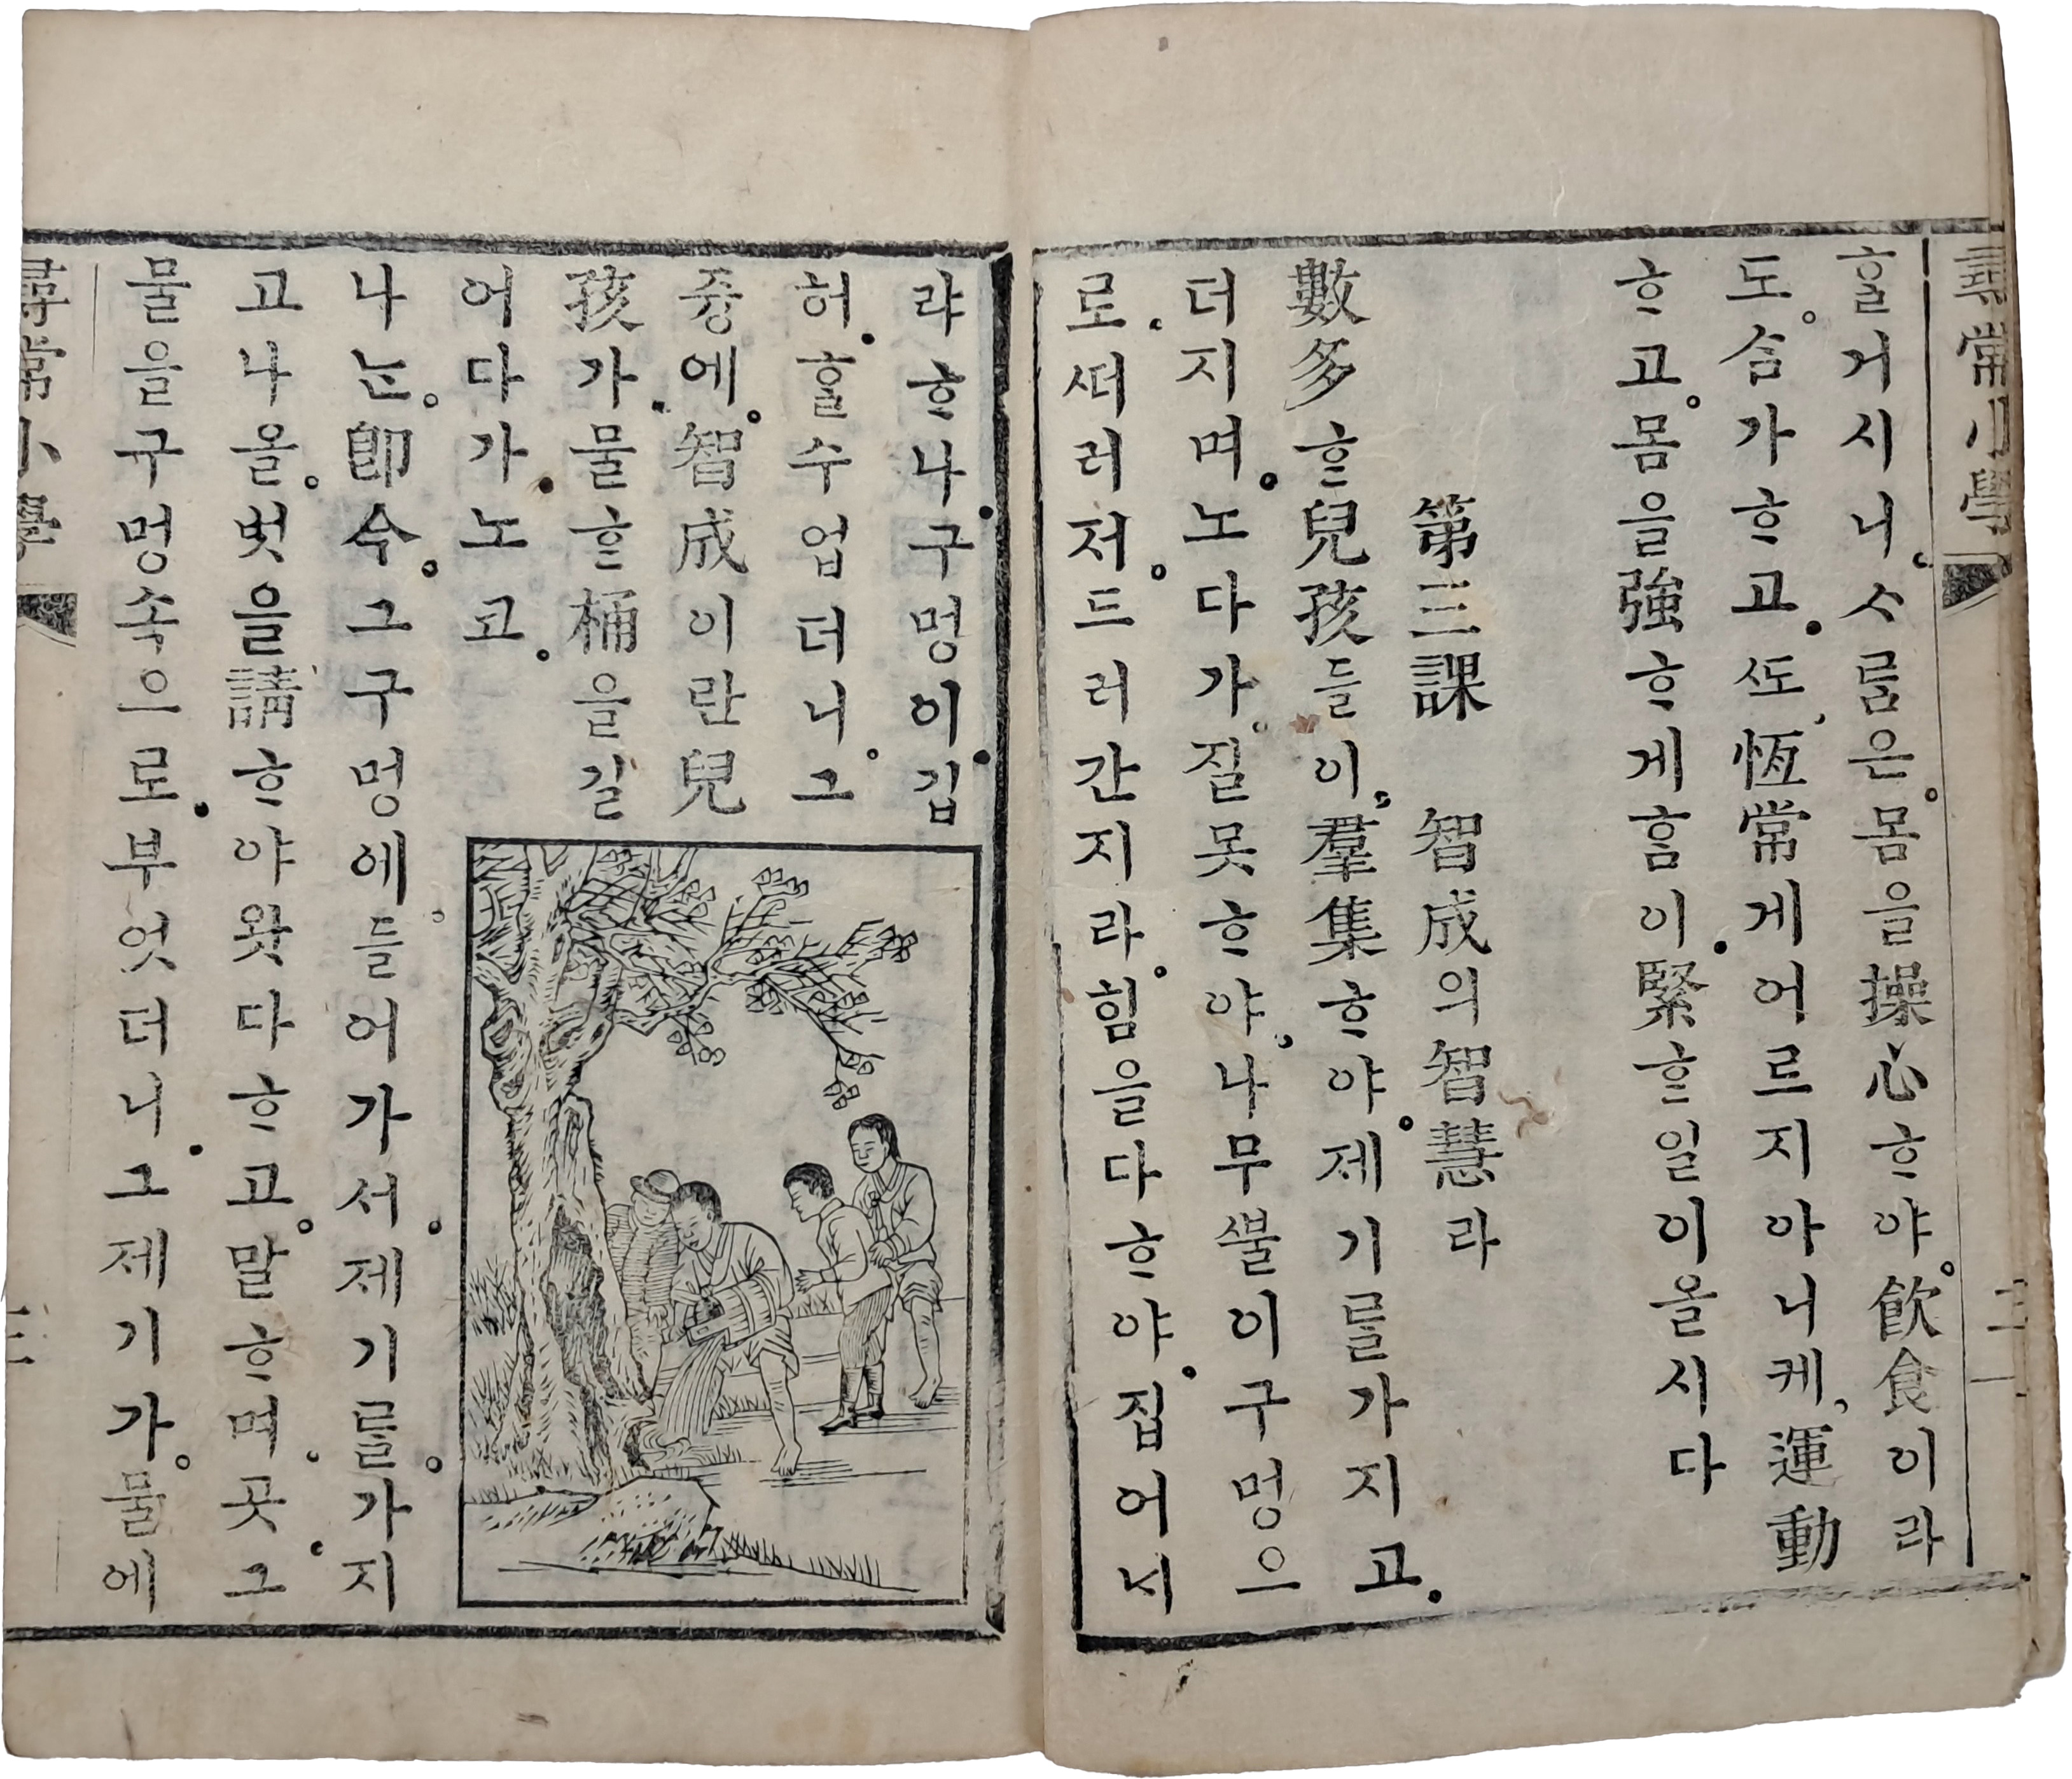 尋常小學
ᄒᆞᆯ거시니、ᄉᆞᄅᆞᆷ은。몸을操心ᄒᆞ야。飮食이라
도。ᄉᆞᆷ가ᄒᆞ고。ᄯᅩ、恆常게어르지아니케、運動
ᄒᆞ고。몸을強ᄒᆞ게ᄒᆞᆷ이。緊ᄒᆞᆫ일이올시다
第三課 智成의智慧라
數多ᄒᆞᆫ兒孩들이、羣集ᄒᆞ야。제기를가지고。
더지며。노다가。잘못ᄒᆞ야、나무ᄲᅮᆯ이구멍으
로、ᄯᅥ러저。드러간지라。힘을다ᄒᆞ야。집어ᄂᆡ
랴ᄒᆞ나。구멍이。깁
허。ᄒᆞᆯ수업더니。그
즁에。智成이란兒
孩가、물ᄒᆞᆫ桶을길
어다가。노코。
나ᄂᆞᆫ。卽今。그구멍에。들어가서。제기를。가지
고나올。벗을講ᄒᆞ야왓다ᄒᆞ고。말ᄒᆞ며。곳。그
물을구멍속으로。부엇더니。그제기가。물에
尋常小學